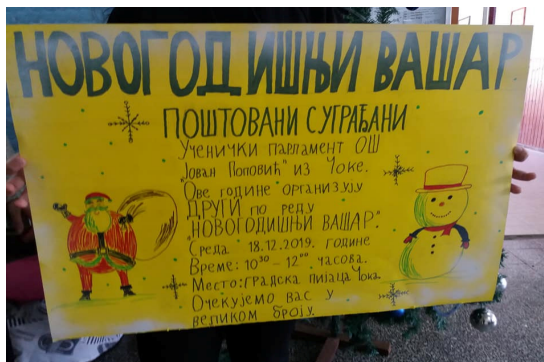 НОВОГОДИШЊИ ВАШАР
ПОШТОВАНИ СУГРАЂАНИ
Ученички парламент ОШ
"Јован Поповић" из Чоке.
"Ове године организују
ДРУГИ по реду
"НОВОГОДИШЊИ ВАШАР."
Среда 18.12.2019. године
Време: 10³⁰ – 12⁰⁰ часова.
Место: градска пијаца Чока.
Очекујемо вас у
великом броју.